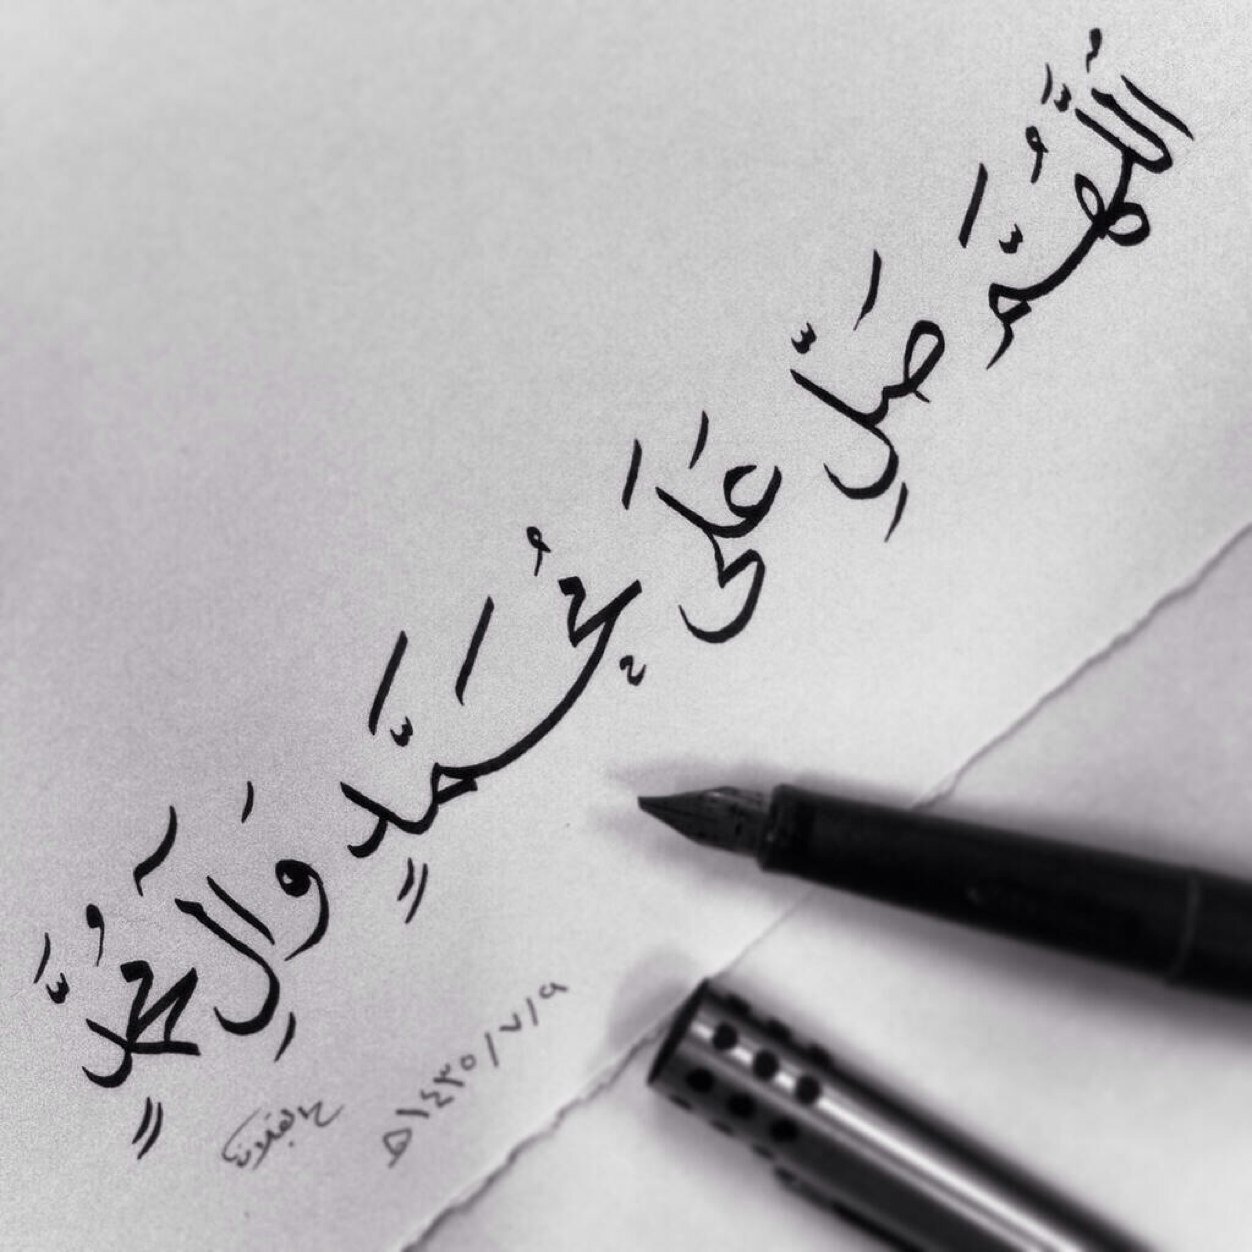 اللَّهُمَّ صَلِّ عَلَى مُحَمَّدٍ وَآلِ مُحَمَّدٍ
١٤٣٥/٧/٩ه